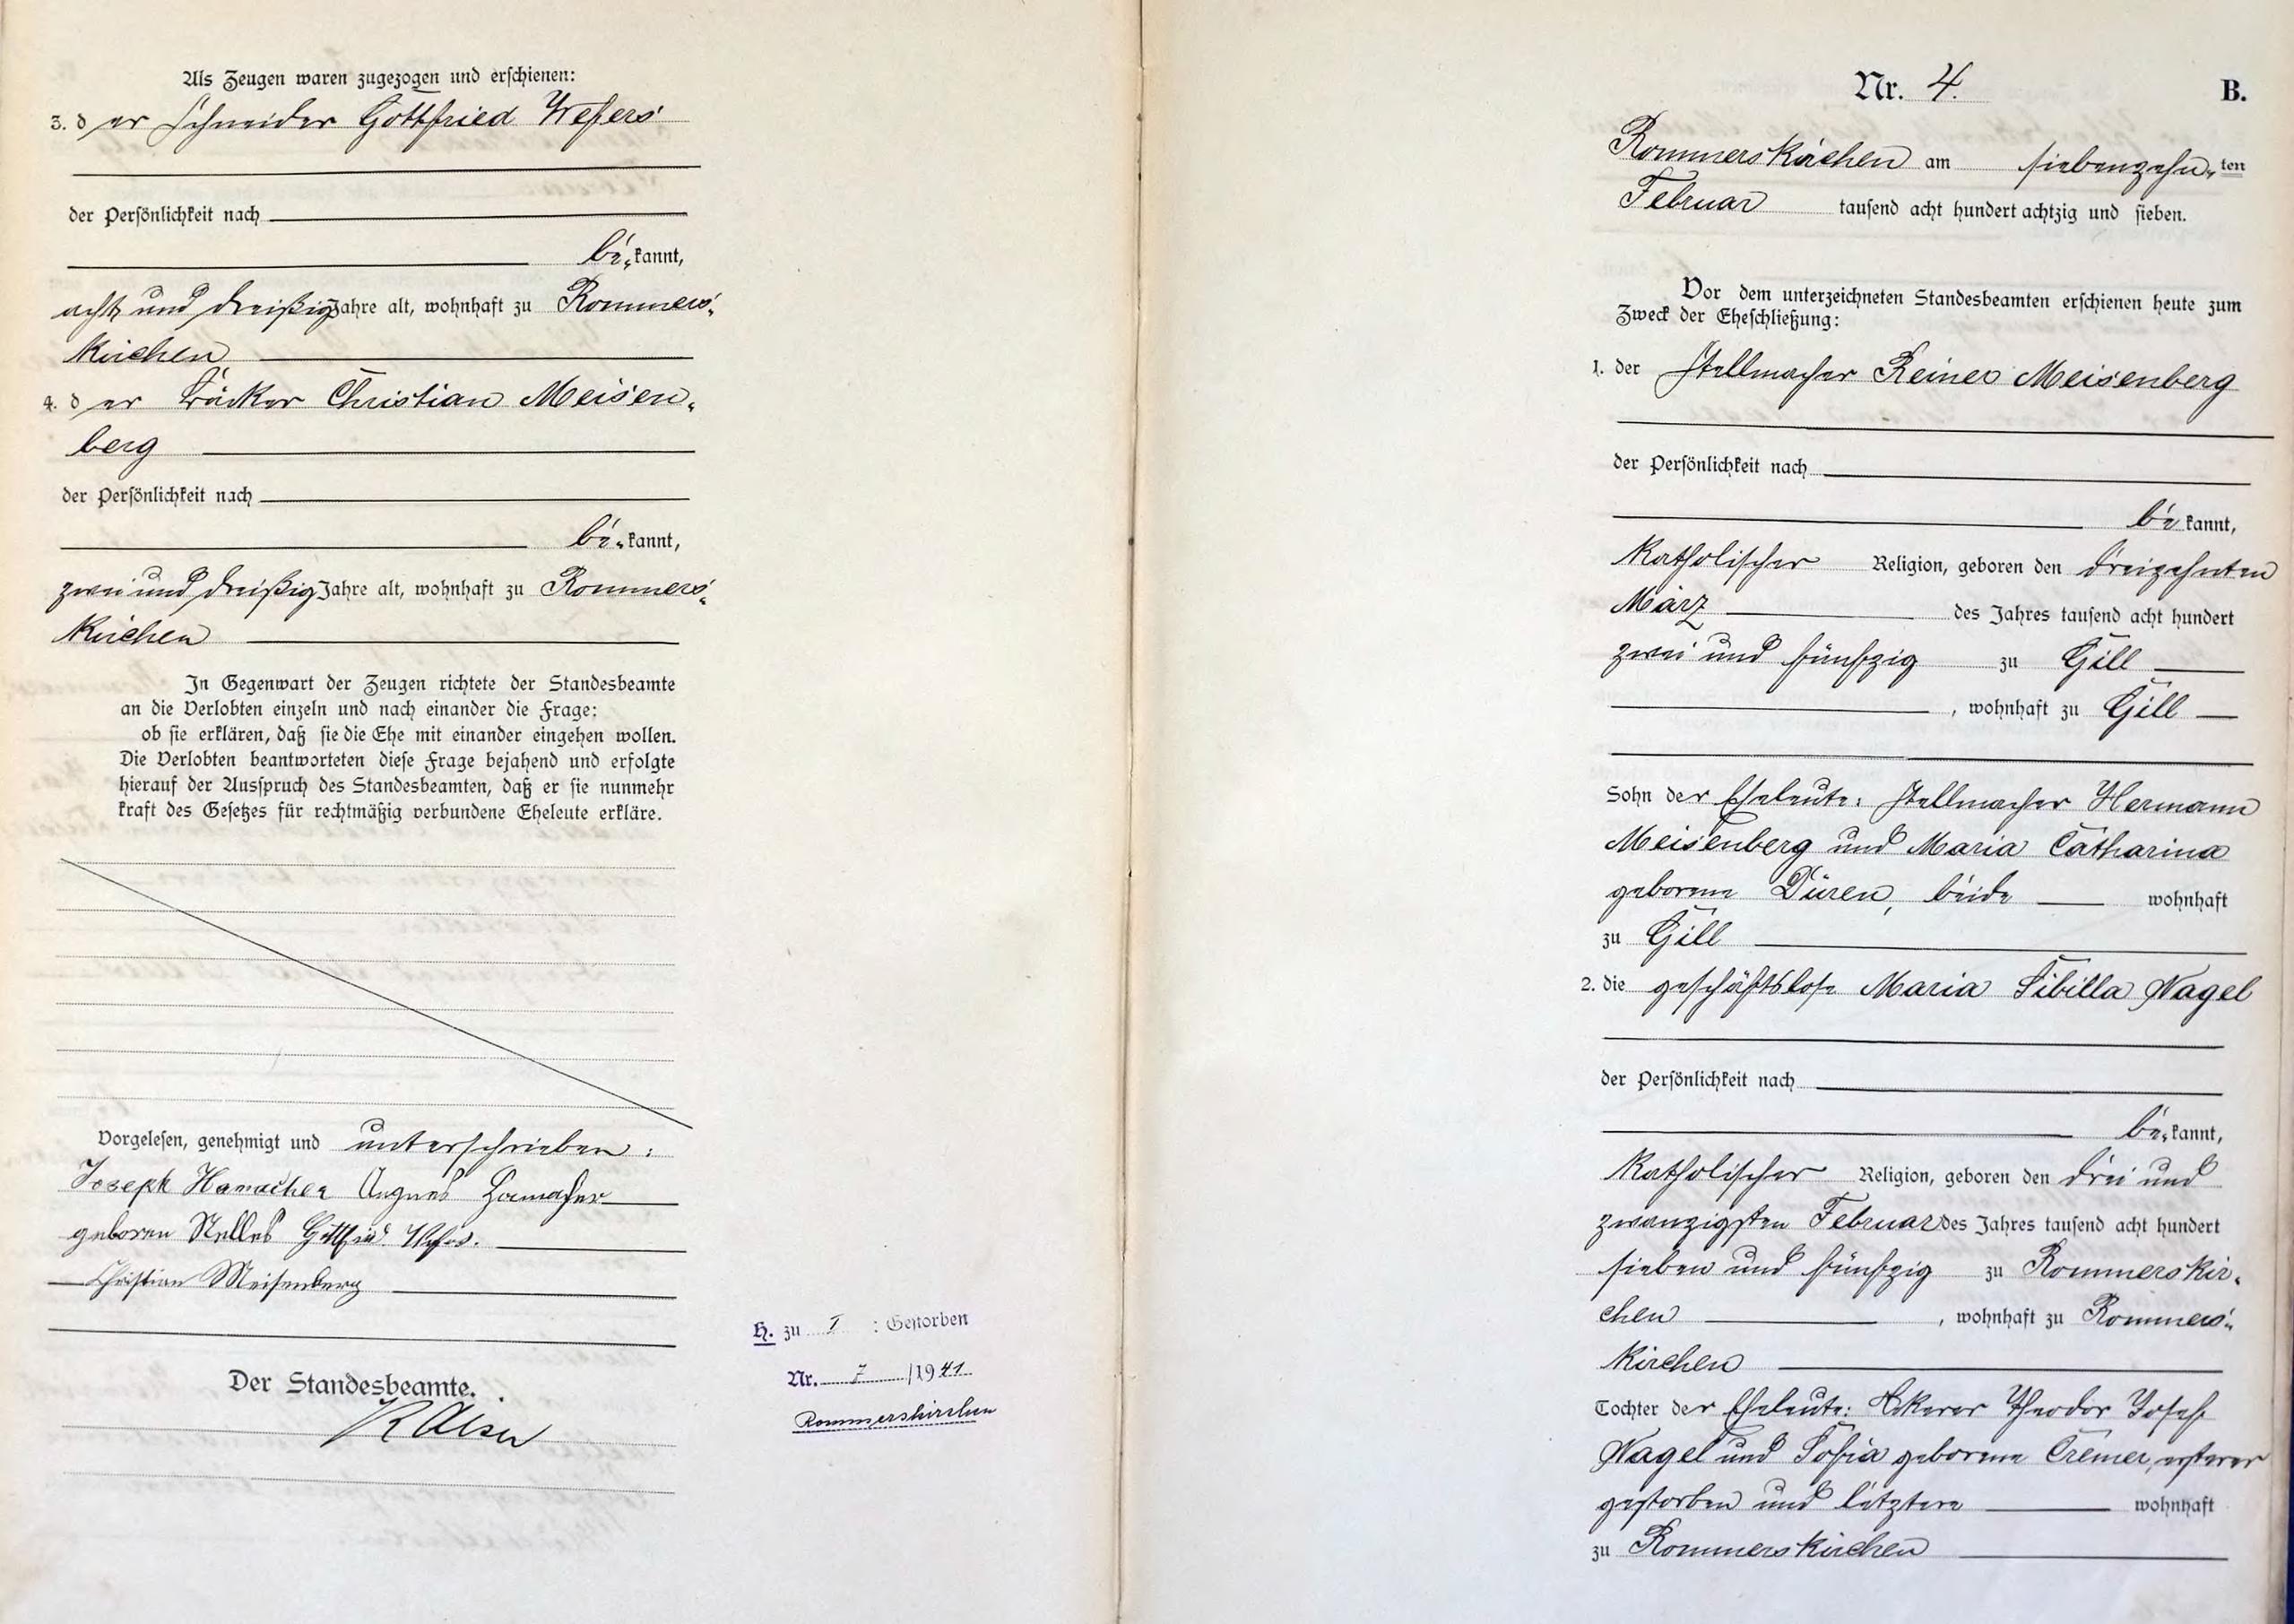 Als Zeugen waren zugezogen und erschienen:
3. d er Schneider Gottfried Wefers
der Persönlichkeit nach
be„kannt,
acht und dreißig Jahre alt, wohnhaft zu Rommers„
kirchen
4. d er Bäcker Christian Meisen„
berg
der Persönlichkeit nach
be„kannt,
zwei und dreißig Jahre alt, wohnhaft zu Rommers„
kirchen
In Gegenwart der Zeugen richtete der Standesbeamte
an die Verlobten einzeln und nach einander die Frage:
ob sie erklären, daß sie die Ehe mit einander eingehen wollen.
Die Verlobten beantworteten diese Frage bejahend und erfolgte
hierauf der Ausspruch des Standesbeamten, daß er sie nunmehr
kraft des Gesetzes für rechtmäßig verbundene Eheleute erkläre.
Vorgelesen, genehmigt und unterschrieben:
Joseph Hamacher Agnes Hamacher
geboren Nelles Gottfried Wefers.
Christian Meisenberg
Der Standesbeamte.
H. zu I : Gestorben
Nr. 7 /1941
Rommerskirchen
Nr. 4. B.
Rommerskirchen am siebenzehn„ten
Februar tausend acht hundert achtzig und sieben.
Vor dem unterzeichneten Standesbeamten erschienen heute zum
Zweck der Eheschließung:
1. der Stellmacher Reiner Meisenberg
der Persönlichkeit nach
be kannt,
katholischer Religion, geboren den dreizehnten
März des Jahres tausend acht hundert
zwei und fünfzig zu Gill
, wohnhaft zu Gill
Sohn der Eheleute: Stellmacher Hermann
Meisenberg und Maria Catharina
geborene Düren, beide wohnhaft
zu Gill
2. die geschäftslose Maria Sibilla Nagel
der Persönlichkeit nach
be„kannt,
katholischer Religion, geboren den drei und
zwanzigsten Februar des Jahres tausend acht hundert
sieben und fünfzig zu Rommerskir„
chen , wohnhaft zu Rommers„
kirchen
Tochter der Eheleute: Ackerer Theodor Josef
Nagel und Sofia geborene Cremer, ersterer
gestorben und letztere wohnhaft
zu Rommerskirchen